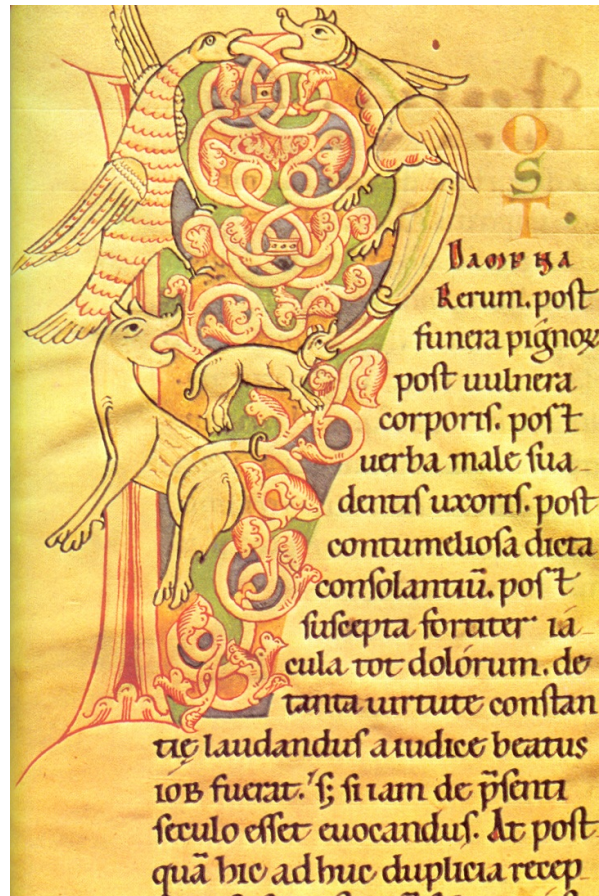 P
O
S
T.
DAMPNA
Rerum. poſt
funera pignoꝝ
poſt uulnera
corporiſ. poſt
uerba male ſua
dentiſ uxoriſ. poſt
contumelioſa dicta
conſolantiū. poſt
ſuſcepta fortiter ia
cula tot dolórum. de
tanta uirtute conſtan
tię laudanduſ a iudice beatus
ioB fuerat. ſ; ſi iam de p̄ſenti
ſeculo eſſet euocanduſ. At poſt
quā hic ad huc duplicia recep